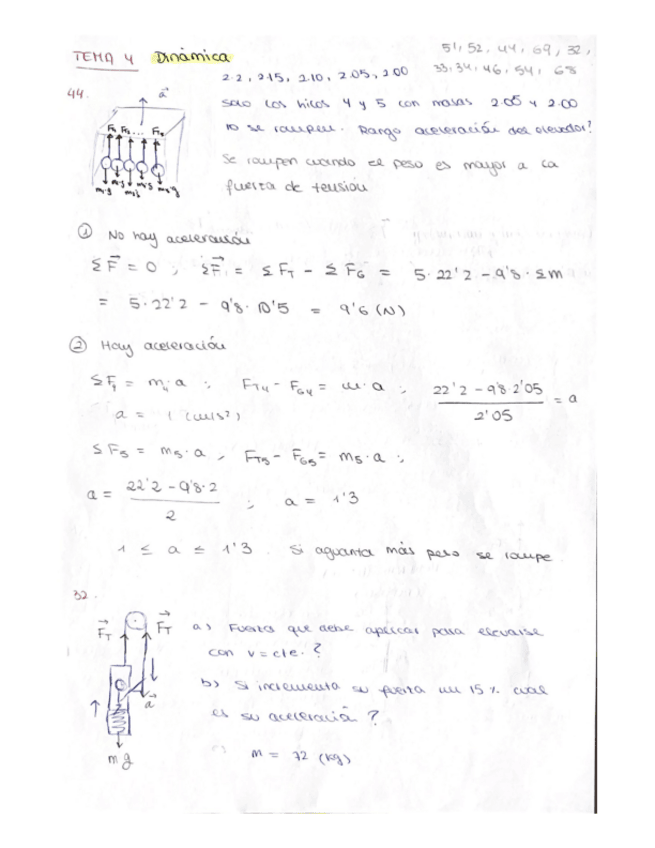 TEMA 4 Dinámica
51, 52, 44, 69, 32,
33, 34, 46, 54, 68
44.
2.2, 2.15, 2.10, 2.05, 2.00
solo los hilos 4 y 5 con masas 2.05 y 2.00
no se rompen. Rango aceleración del elevador?
Se rompen cuando el peso es mayor a la
fuerza de tensión
① No hay aceleración
ΣF = 0 ; ΣF = ΣF_T - ΣF_G = 5·22'2 - 9'8·Σm
= 5·22'2 - 9'8·10'5 = 9'6 (N)
② Hay aceleración
ΣF₄ = m₄·a ; F_T4 - F_G4 = m·a ; (22'2 - 9'8·2'05) / 2'05 = a
a = 1 (m/s²)
ΣF₅ = m₅·a , F_T5 - F_G5 = m₅·a ;
a = (22'2 - 9'8·2) / 2 ; a = 1'3
1 ≤ a ≤ 1'3 . Si aguanta más peso se rompe.
32.
F_T F_T a) Fuerza que debe aplicar para elevarse
con v = cte. ?
b) Si incrementa su fuerza un 15 % cuál
a es su aceleración ?
m g m = 72 (kg)